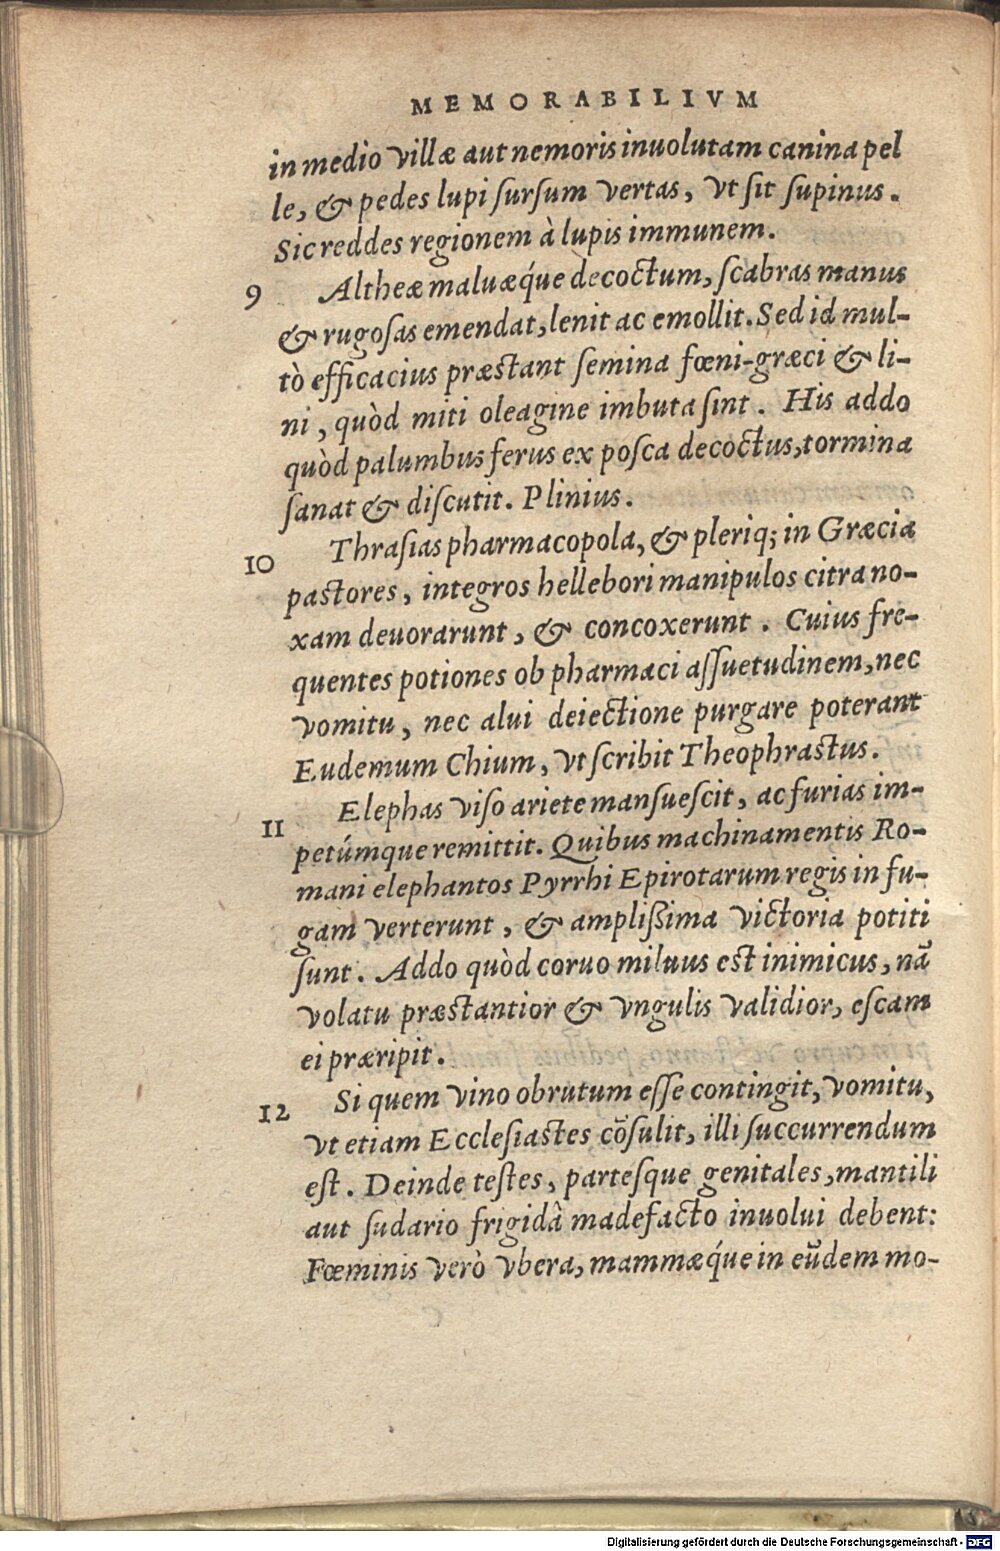 MEMORABILIVM
in medio villæ aut nemoris inuolutam canina pel
le, & pedes lupi ſurſum vertas, vt ſit ſupinus.
Sic reddes regionem à lupis immunem.
9 Altheæ maluæq́ue decoctum, ſcabras manus
& rugoſas emendat, lenit ac emollit. Sed id mul-
tò efficacius præſtant ſemina fœni-græci & li-
ni, quòd miti oleagine imbuta ſint. His addo
quòd palumbus ferus ex poſca decoctus, tormina
ſanat & diſcutit. Plinius.
10 Thraſias pharmacopola, & pleriq; in Græcia
paſtores, integros hellebori manipulos citra no-
xam deuorarunt, & concoxerunt. Cuius fre-
quentes potiones ob pharmaci aſſuetudinem, nec
vomitu, nec alui deiectione purgare poterant
Eudemum Chium, vt ſcribit Theophraſtus.
11 Elephas viſo ariete manſueſcit, ac furias im-
petúmque remittit. Quibus machinamentis Ro-
mani elephantos Pyrrhi Epirotarum regis in fu-
gam verterunt, & ampliſsima victoria potiti
ſunt. Addo quòd coruo miluus eſt inimicus, nā
volatu præſtantior & vngulis validior, eſcam
ei præripit.
12 Si quem vino obrutum eſſe contingit, vomitu,
vt etiam Eccleſiaſtes cōſulit, illi ſuccurrendum
eſt. Deinde teſtes, parteſque genitales, mantili
aut ſudario frigidâ madefacto inuolui debent:
Fœminis verò vbera, mammæq́ue in eūdem mo-
Digitalisierung gefördert durch die Deutsche Forschungsgemeinschaft - DFG